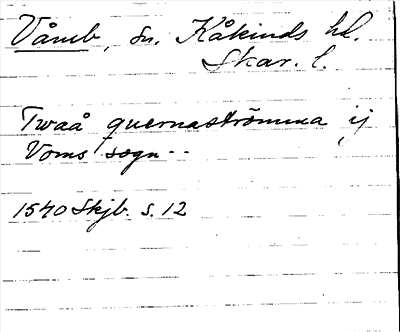 Våmb, sn. Kåkinds hd.
Skar. l.
Twaå quernaströmma ij
Voms sogn --
1540 Skjb. s. 12